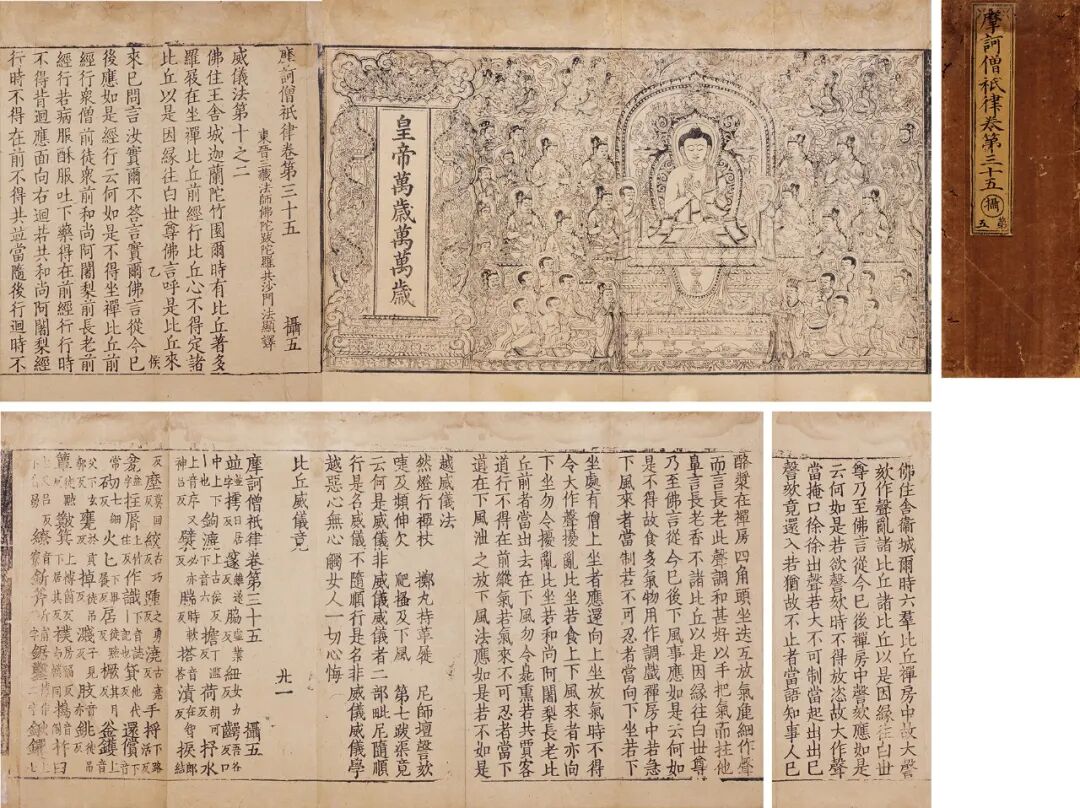 摩訶僧祇律卷第三十五 攝 第五
皇帝萬歲萬萬歲
摩訶僧祇律卷第三十五 攝五
東晉三藏法師佛陀跋陀羅共沙門法顯譯
威儀法第十之二
佛住王舍城迦蘭陀竹園爾時有比丘著多
羅屐在坐禪比丘前經行比丘心不得定諸
比丘以是因緣往白世尊佛言呼是比丘來
來已問言汝實爾不答言實爾佛言從今已
乙 侯
後應如是經行云何如是不得坐禪比丘前
經行衆僧前徒衆前和尚阿闍梨前長老前
經行若病服酥服吐下藥得在前經行行時
不得背迴應面向右迴若共和尚阿闍梨經
行時不得在前不得共並當隨後行迴時不
佛住舍衛城爾時六羣比丘禪房中故大謦
欬作聲亂諸比丘諸比丘以是因緣往白世
尊乃至佛言從今已後禪房中謦欬應如是
云何如是若欲謦欬時不得放恣故大作聲
當掩口徐徐出聲若大不可制當起出出已
謦欬竟還入若猶故不止者當語知事人已
酪漿在禪房四角頭坐迭互放氣麁細作聲
而言長老此聲調和甚好以手把氣而拄他
鼻言長老香不諸比丘以是因緣往白世尊
乃至佛言從今已後下風事應如是云何如
是不得故食多氣物用作調戲禪房中若急
下風來者當制若不可忍者當向下坐若下
坐處有僧上坐者應還向上坐放氣時不得
令大作聲擾亂比坐若食上下風來者亦向
下坐勿令擾亂比坐若和尚阿闍梨長老比
丘前者當出去在下風勿令臭熏若共賈客
道行不得在前縱氣若氣來不可忍者當下
道在下風泄之放下風法應如是若不如是
越威儀法
然燈行禪杖 擲丸持革屣 尼師壇謦欬
嚏及頻伸欠 爬搔及下風 第七跋渠竟
云何是威儀非威儀威儀者二部毗尼隨順
行是名威儀不隨順行是名非威儀威儀學
越惡心無心 觸女人一切心悔
比丘威儀竟
廿一
摩訶僧祇律卷第三十五 攝五